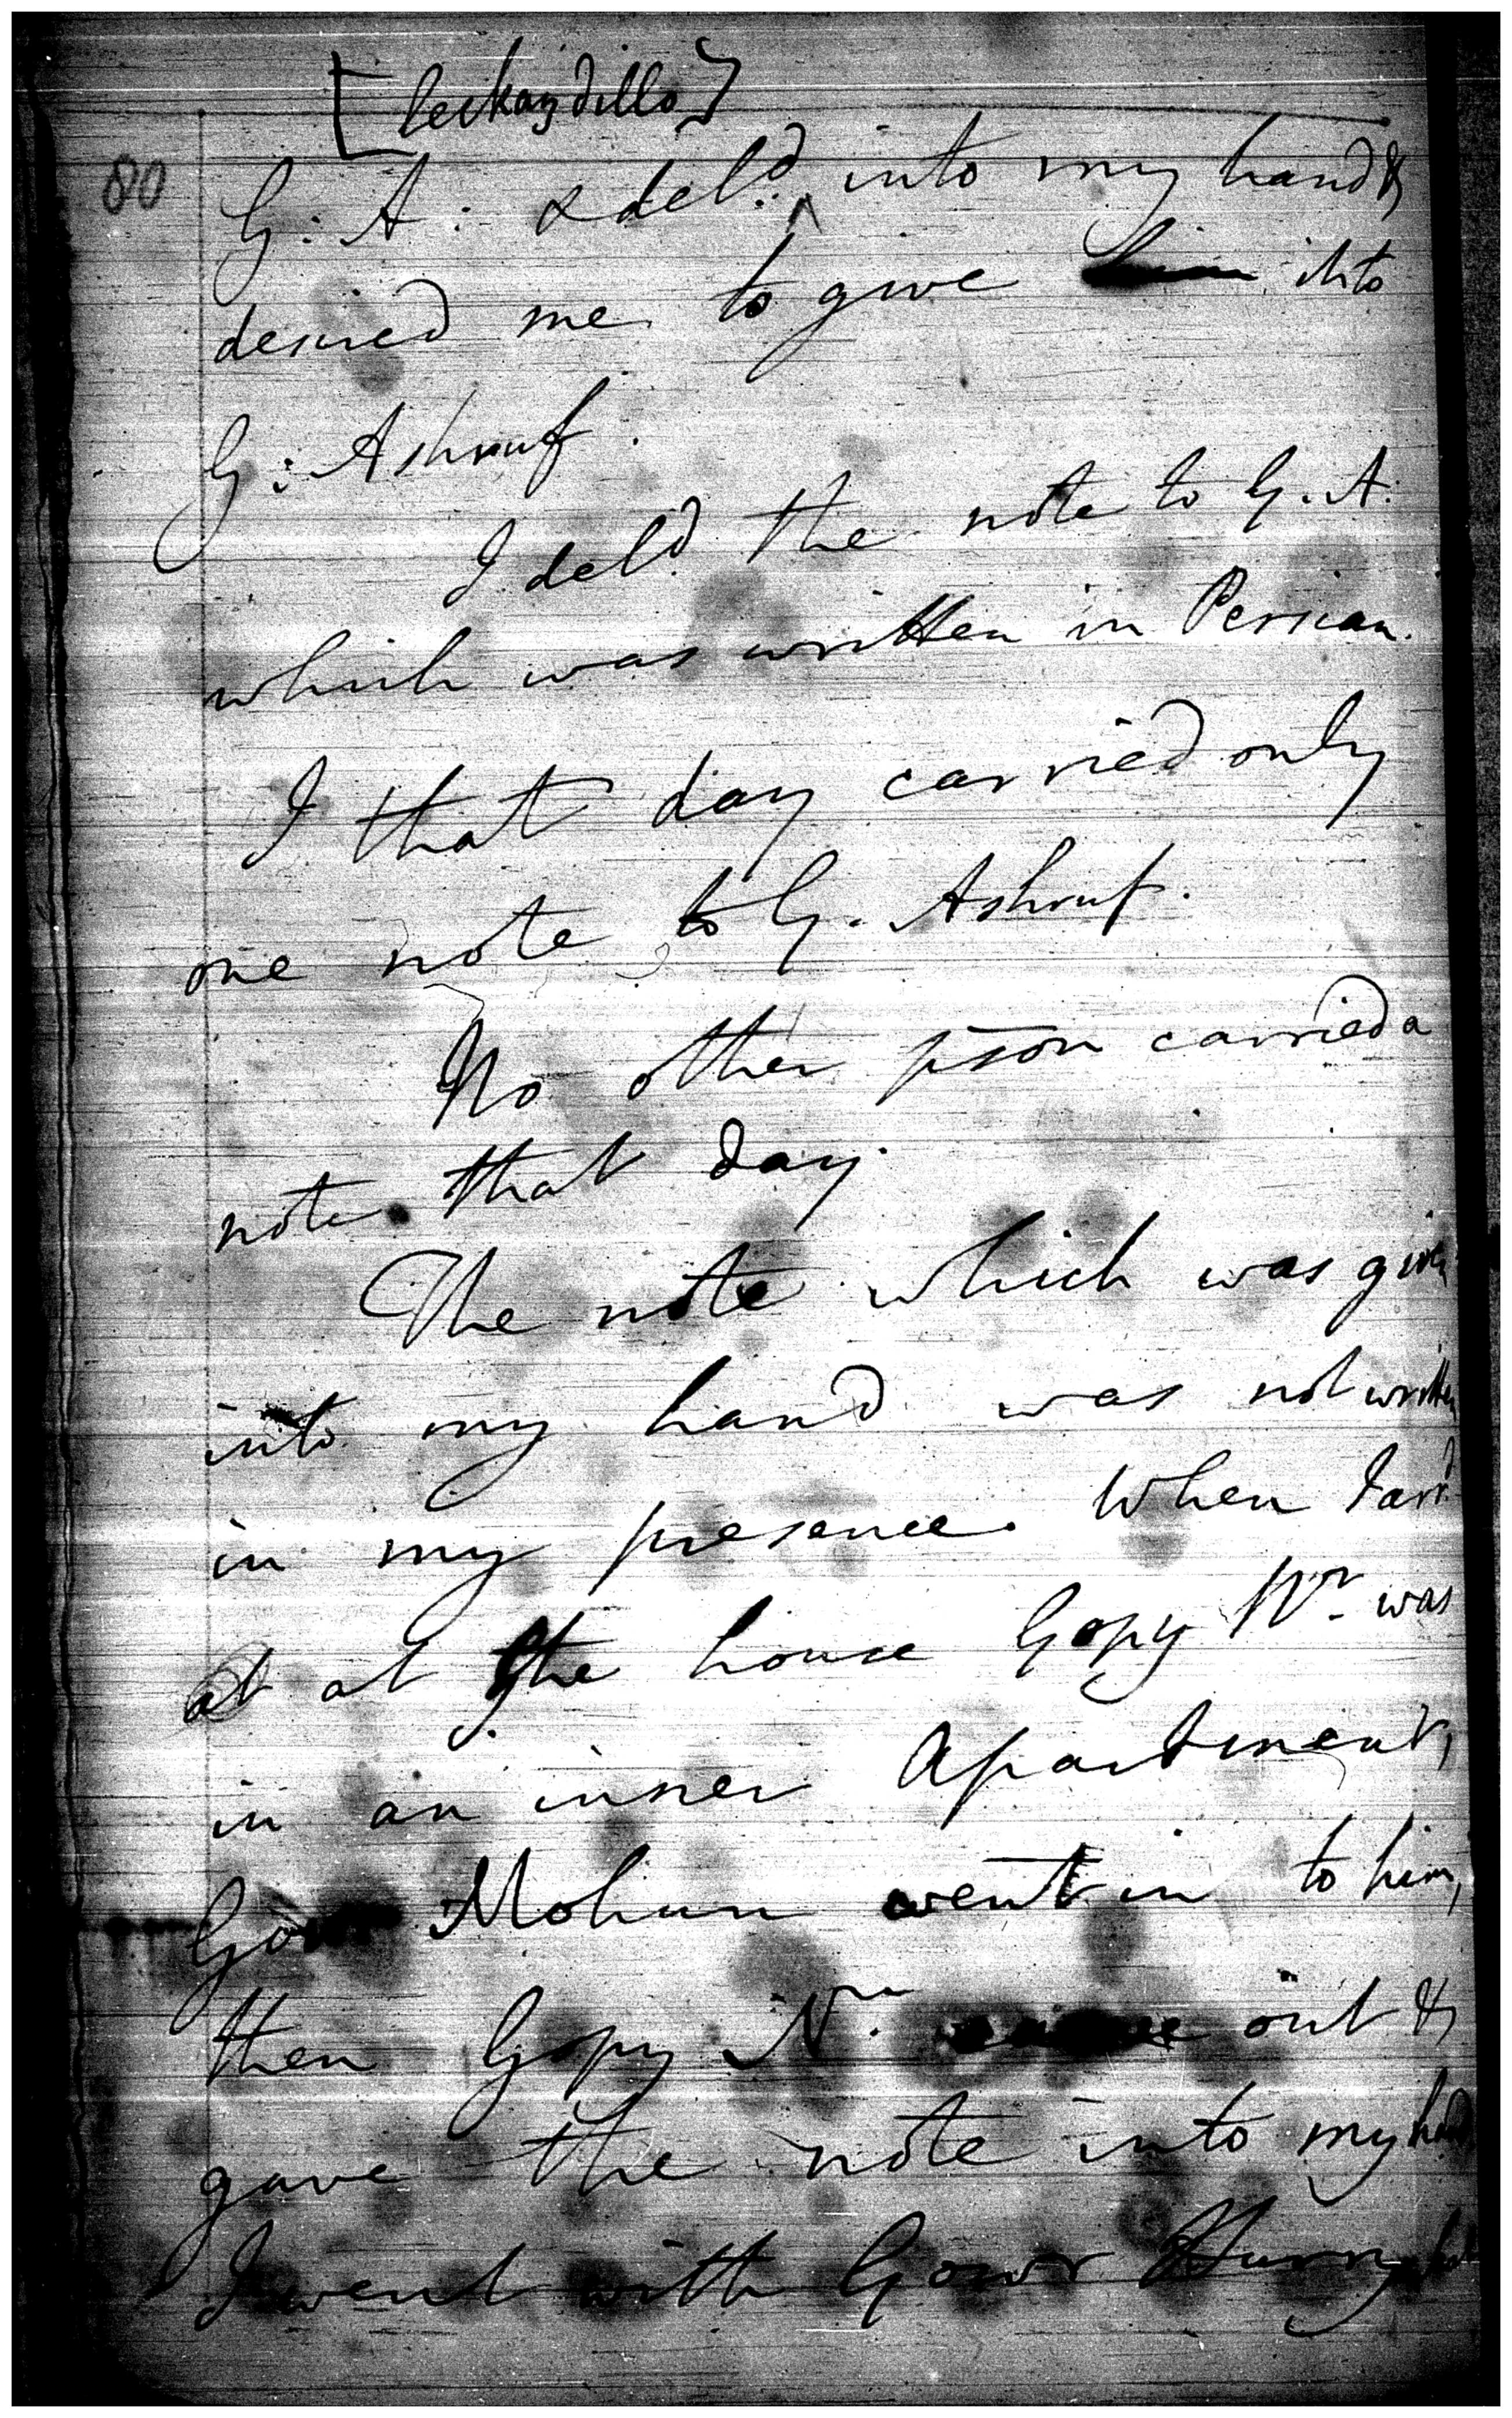 80
G: A. & deld. into my hand &
desired me to give it to
G: Ashruf.
I deld. the note to G. A.
which was written in Persian.
I that day carried only
one note to G. Ashruf.
No other pson carried a
note that day.
The note which was given
into my hand was not written
in my presence. When I arrd.
at at the house Gopy Nr. was
in an inner Apartment,
Gour Mohun went in to him,
then Gopy Nr. came out &
gave the note into my hand
I went with Gowr Hurry